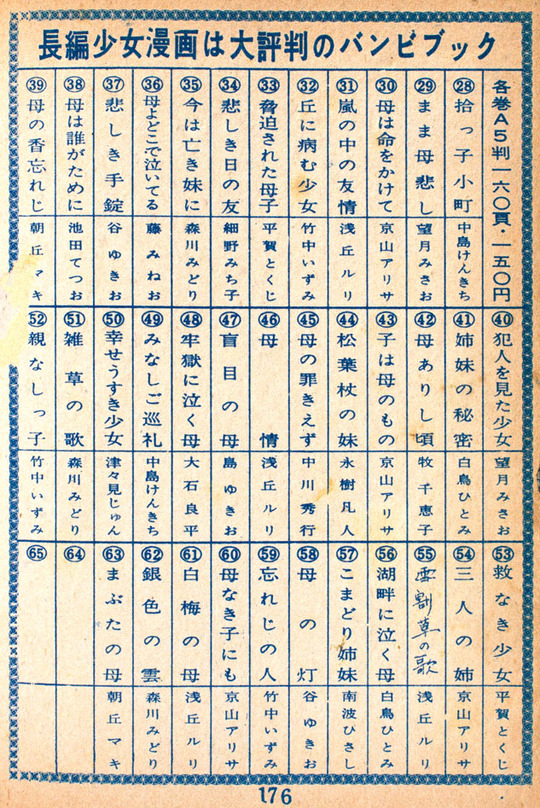 長編少女漫画は大評判のバンビブック
各巻A5判一六〇頁・一五〇円
㉘ 拾っ子小町 中島けんきち
㉙ まま母悲し 望月みさお
㉚ 母は命をかけて 京山アリサ
㉛ 嵐の中の友情 浅丘ルリ
㉜ 丘に病む少女 竹中いずみ
㉝ 脅迫された母子 平賀とくじ
㉞ 悲しき日の友 細野みち子
㉟ 今は亡き妹に 森川みどり
㊱ 母よどこで泣いてる 藤みねお
㊲ 悲しき手錠 谷ゆきお
㊳ 母は誰がために 池田てつお
㊴ 母の香忘れじ 朝丘マキ
㊵ 犯人を見た少女 望月みさお
㊶ 姉妹の秘密 白鳥ひとみ
㊷ 母ありし頃 牧千恵子
㊸ 子は母のもの 京山アリサ
㊹ 松葉杖の妹 永樹凡人
㊺ 母の罪きえず 中川秀行
㊻ 母情 浅丘ルリ
㊼ 盲目の母 島ゆきお
㊽ 牢獄に泣く母 大石良平
㊾ みなしご巡礼 中島けんきち
㊿ 幸せうすき少女 津々見じゅん
51 雑草の歌 森川みどり
52 親なしっ子 竹中いずみ
53 救なき少女 平賀とくじ
54 三人の姉 京山アリサ
55 雪割草の歌 浅丘ルリ
56 湖畔に泣く母 白鳥ひとみ
57 こまどり姉妹 南波ひさし
58 母の灯 谷ゆきお
59 忘れじの人 竹中いずみ
60 母なき子にも 京山アリサ
61 白梅の母 浅丘ルリ
62 銀色の雲 森川みどり
63 まぶたの母 朝丘マキ
64
65
176